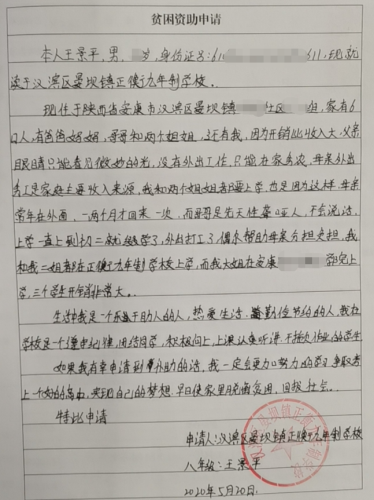 贫困资助申请
本人王景平,男,岁,身份证号:6 611,现就
读于汉滨区晏坝镇正德九年制学校。
现住于陕西省安康市汉滨区晏坝镇 社区 组,家有6
口人,有爸爸妈妈,哥哥和两个姐姐,还有我,因为开销比收入大,父亲
眼睛只能看见微妙的光,没有外出工作,只能在家务农,母亲外出
务工是家庭主要收入来源,我和两个姐姐都要上学,也是因为这样,母亲
常年在外面,一两个月才回来一次,而哥哥是先天性聋哑人,不会说话,
上学一直上到初二就缀学了,外出打工了偶尔帮助母亲分担史担,我
和我二姐都在正德九年制学校上学,而我大姐在安康 学完上
学,三个学生开销非常大。
生活中我是一个乐于助人的人,热爱生活,勤俭节约的人,我在
学校是一个遵守纪律,团结同学,积极向上,上课认真听讲,不拖欠作业的学生
如果我有幸申请到补助的话,我一定会更加努力的学习,争取考
上一个好的高中,实现自己的梦想,早日使家里脱离贫困,回报社会。
特此申请
申请人:汉滨区晏坝镇正德九年制学校
八年级:王景平
2020年5月20日